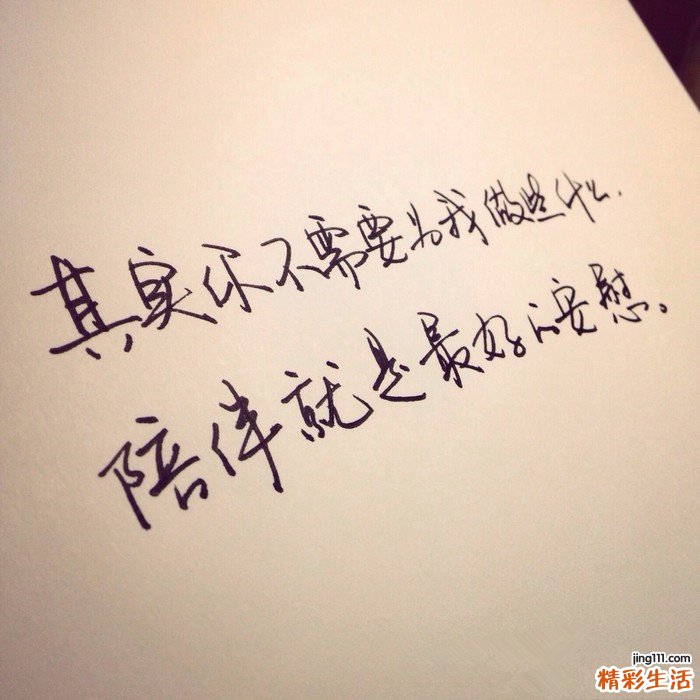 其实你不需要为我做些什么.
陪伴就是最好的安慰。
jing111.com
精彩生活